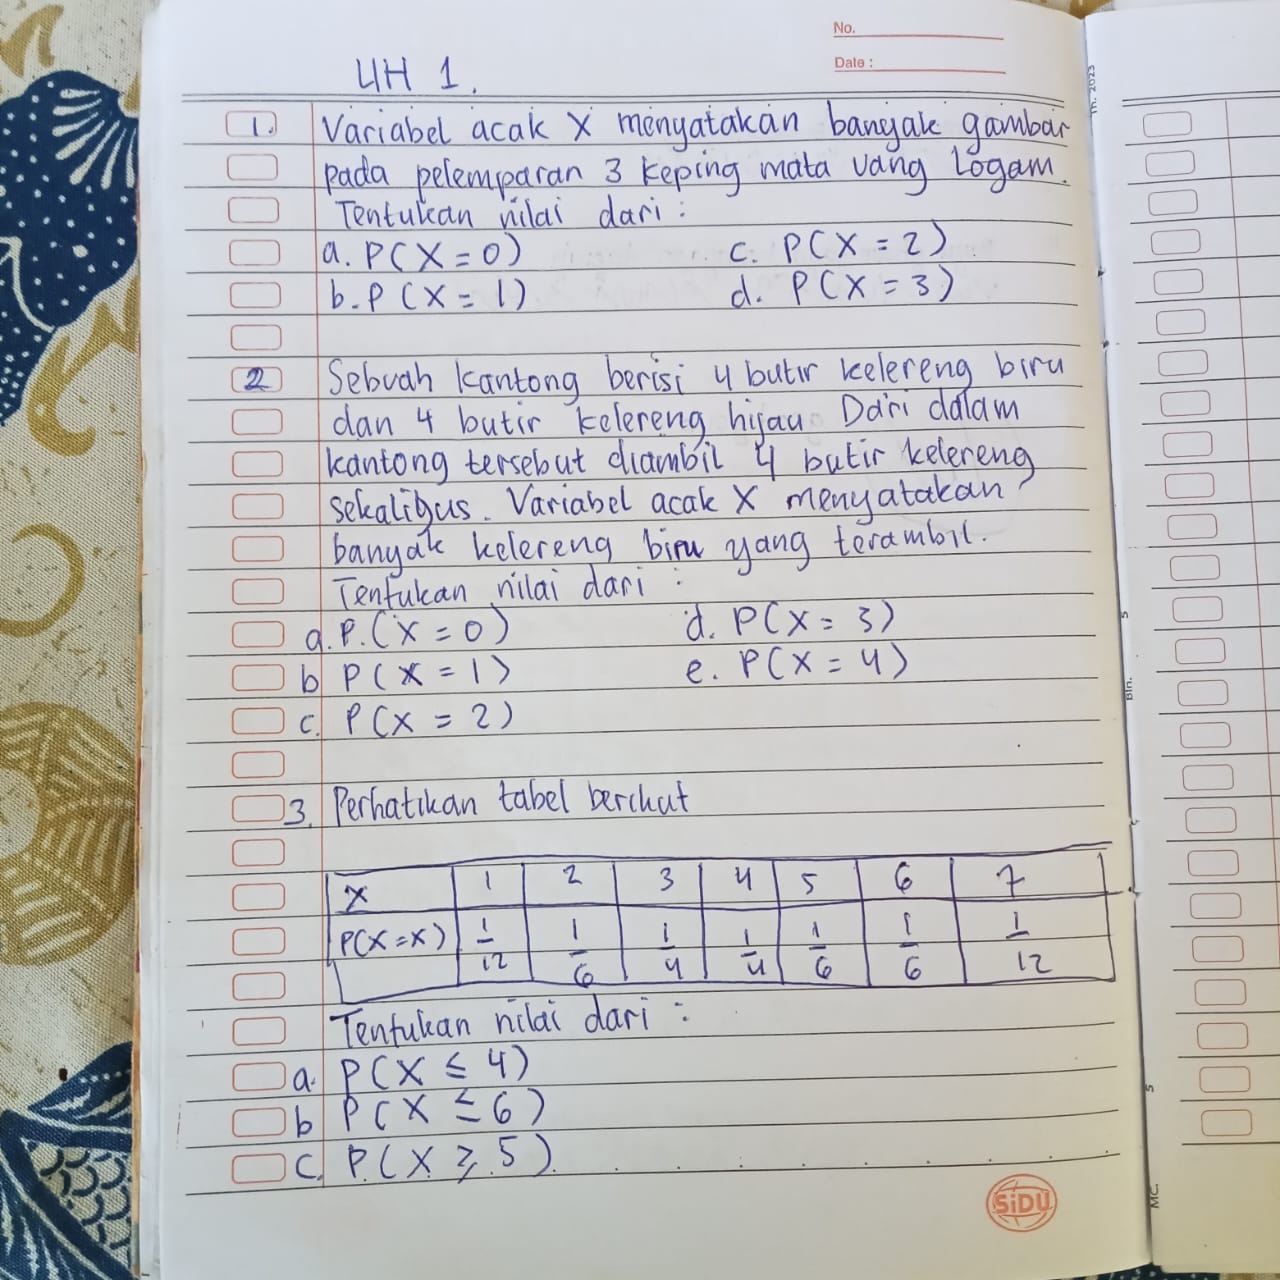 No.
Date :
UH 1.
1. Variabel acak X menyatakan banyak gambar
pada pelemparan 3 keping mata uang Logam.
Tentukan nilai dari :
a. P(X = 0) c. P(X = 2)
b. P(X = 1) d. P(X = 3)
2 Sebuah kantong berisi 4 butir kelereng biru
dan 4 butir kelereng hijau Dari dalam
kantong tersebut diambil 4 butir kelereng
sekaligus. Variabel acak X menyatakan
banyak kelereng biru yang terambil.
Tentukan nilai dari :
a. P.(X = 0) d. P(X = 3)
b P(X = 1) e. P(X = 4)
c. P(X = 2)
3. Perhatikan tabel berikut
X 1 2 3 4 5 6 7
P(X=x) 1/12 1/6 1/4 1/4 1/6 1/6 1/12
Tentukan nilai dari :
a. P(X ≤ 4)
b P(X ≤ 6)
c. P(X ≥ 5)
SiDU